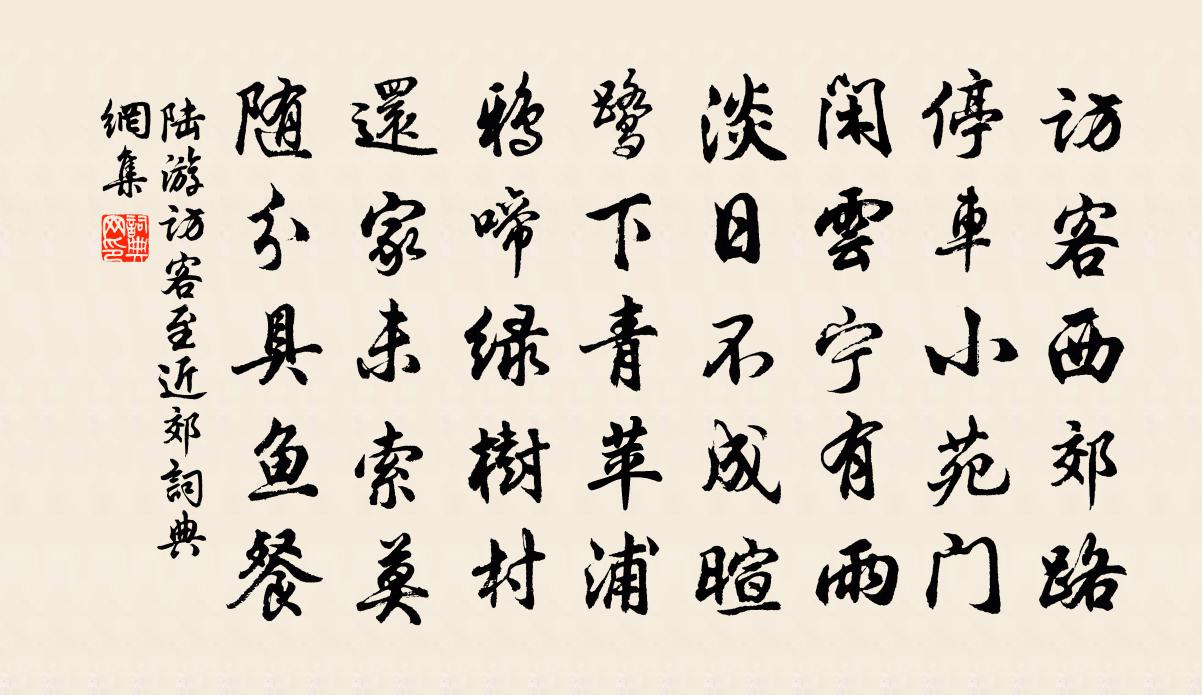 访客西郊路
停車小苑门
闲雲宁有雨
淡日不成暄
鹭下青苹浦
鸦啼绿樹村
還家未索莫
随分具鱼餐
陆游访客至近郊詞典
網集
詞典
网印